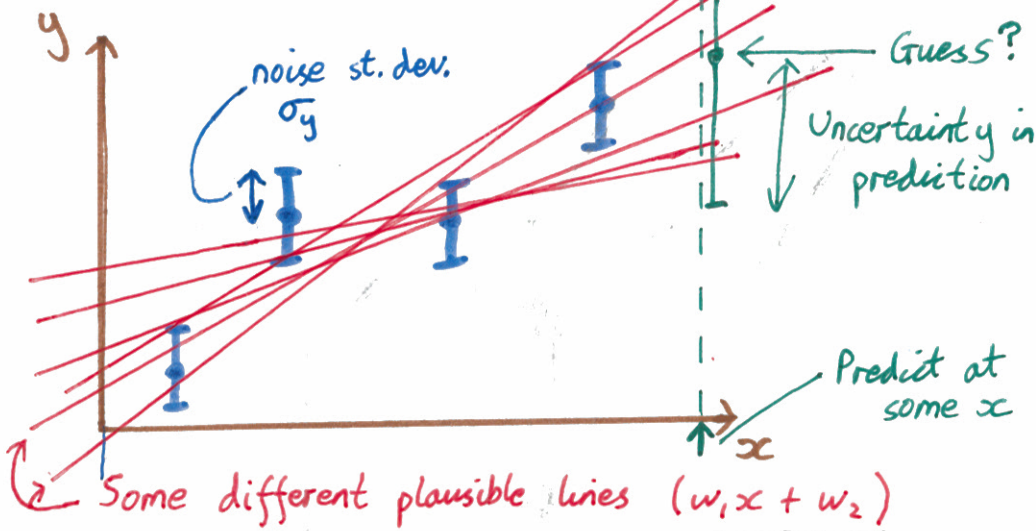 y
noise st. dev.
σy
Guess?
Uncertainty in
prediction
Predict at
some x
x
Some different plausible lines (w₁x + w₂)